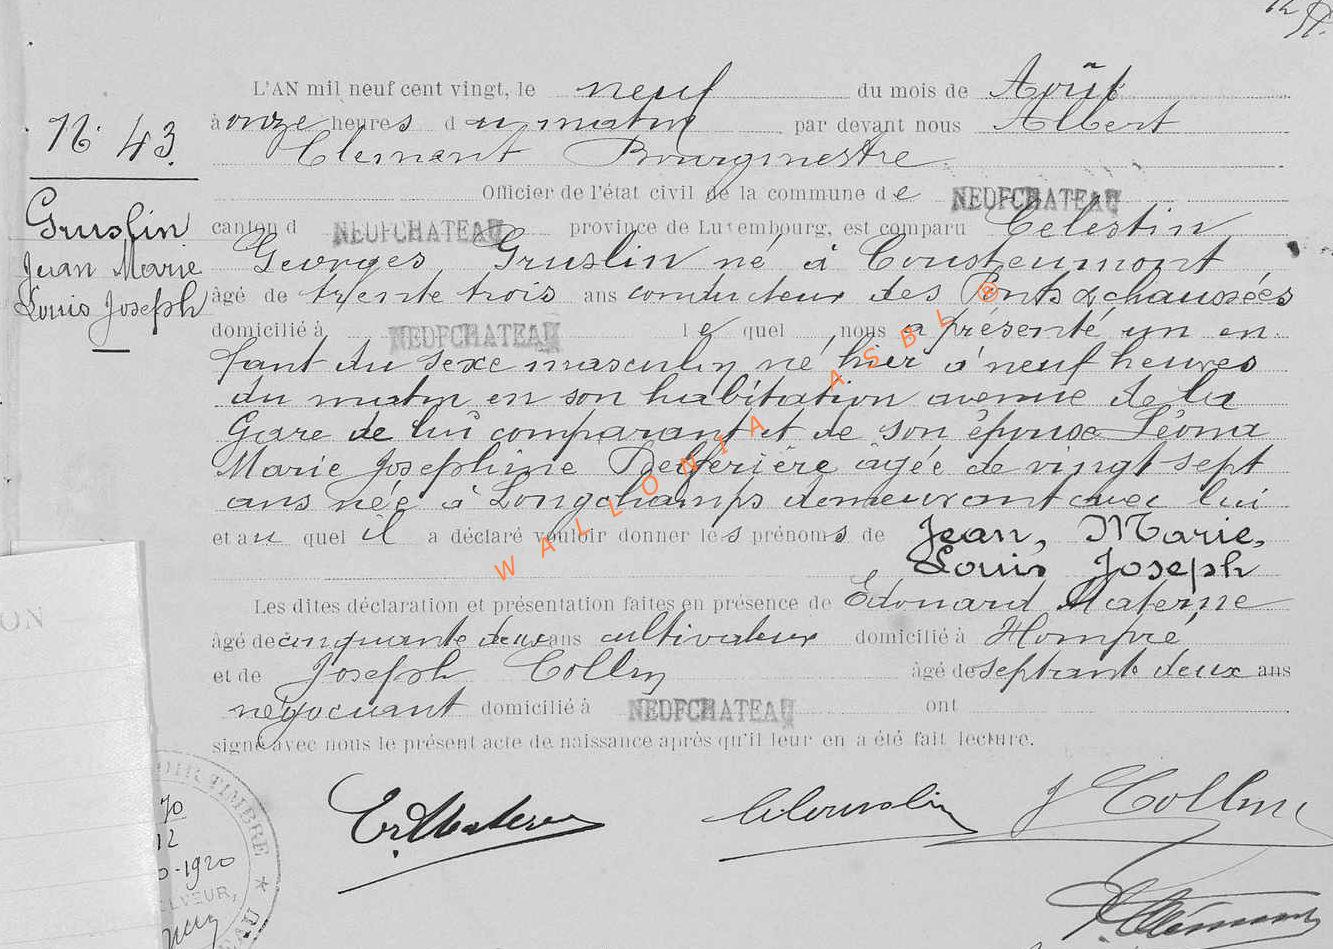 N° 43.
Gruslin
Jean Marie
Louis Joseph
L'AN mil neuf cent vingt, le neuf du mois de Août
à onze heures du matin par devant nous Albert
Clément Bourgmestre
Officier de l'état civil de la commune de NEUFCHATEAU
canton d NEUFCHATEAU province de Luxembourg, est comparu Célestin
Georges Gruslin né à Cousteumont
âgé de trente trois ans conducteur des Ponts & chaussées
domicilié à NEUFCHATEAU lequel nous a présenté un en
fant du sexe masculin né hier à neuf heures
du matin en son habitation avenue de la
Gare de lui comparant et de son épouse Léona
Marie Joséphine agée de vingt sept
ans née à Longchamps demeurant avec lui
et auquel il a déclaré vouloir donner les prénoms de Jean, Marie,
Louis Joseph
Les dites déclaration et présentation faites en présence de Edouard Materne
âgé de cinquante deux ans cultivateur domicilié à Hompré
et de Joseph Collin âgé de septante deux ans
négociant domicilié à NEUFCHATEAU ont
signé avec nous le présent acte de naissance après qu'il leur en a été fait lecture.
WALLONIA ASBL ©
Ed. Materne
C. Gruslin
J Collin
A. Clément
ON
TIMBRE
70
12
0-1920
EVEUR,
EAU